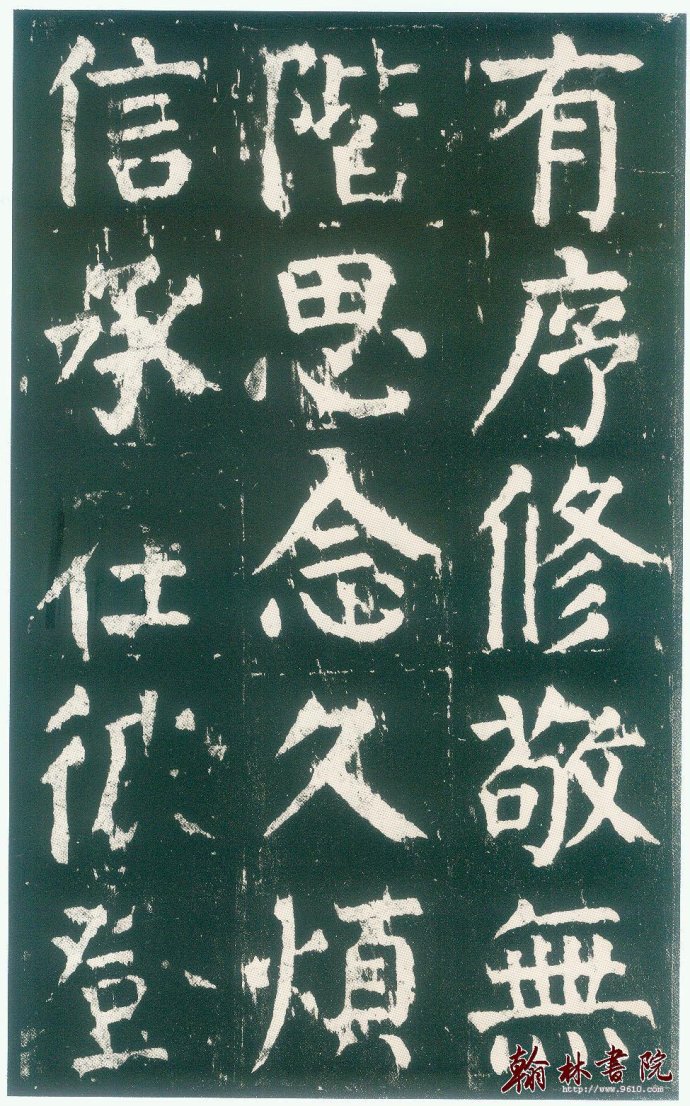 有序修敬無
階思念久煩
信承仕登
翰林書院
http://www.9610.com